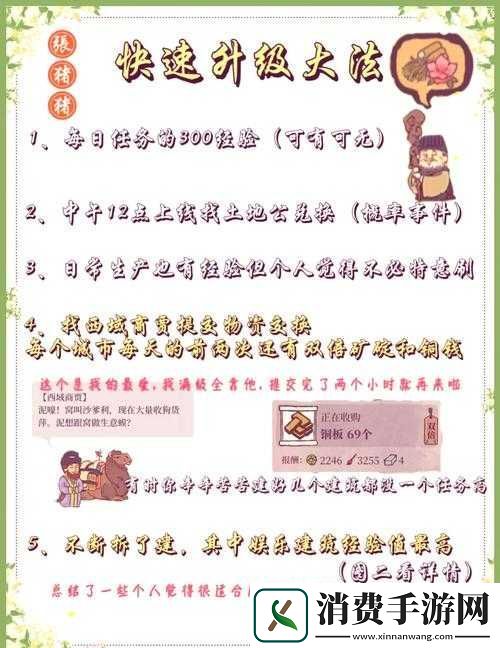 張豬豬
快速升级大法
1、每日任务的300经验（可有可无）
2、中午12点上线找土地公兑换（概率事件）
3、日常生产也有经验但个人觉得不必特意刷
4、找西域商贾提交物资交换
每个城市每天的前两次还有双倍矿碇和铜钱
这个是我的最爱，我满级全靠他，提交完了两个小时就再来啦
【西域商贾】
泥嚎！窝叫沙爹利，现在大量收购货
萍。泥想跟窝做生意嫫？
正在收购
铜板 69个
双倍
报酬：2246 3255 4
有时你辛辛苦苦建好几个建筑都没一个任务高
5、不断拆了建，其中娱乐建筑经验值最高
（图二看详情）
总结了一些个人觉得很适合
消费手游网
www.xinnanwang.com